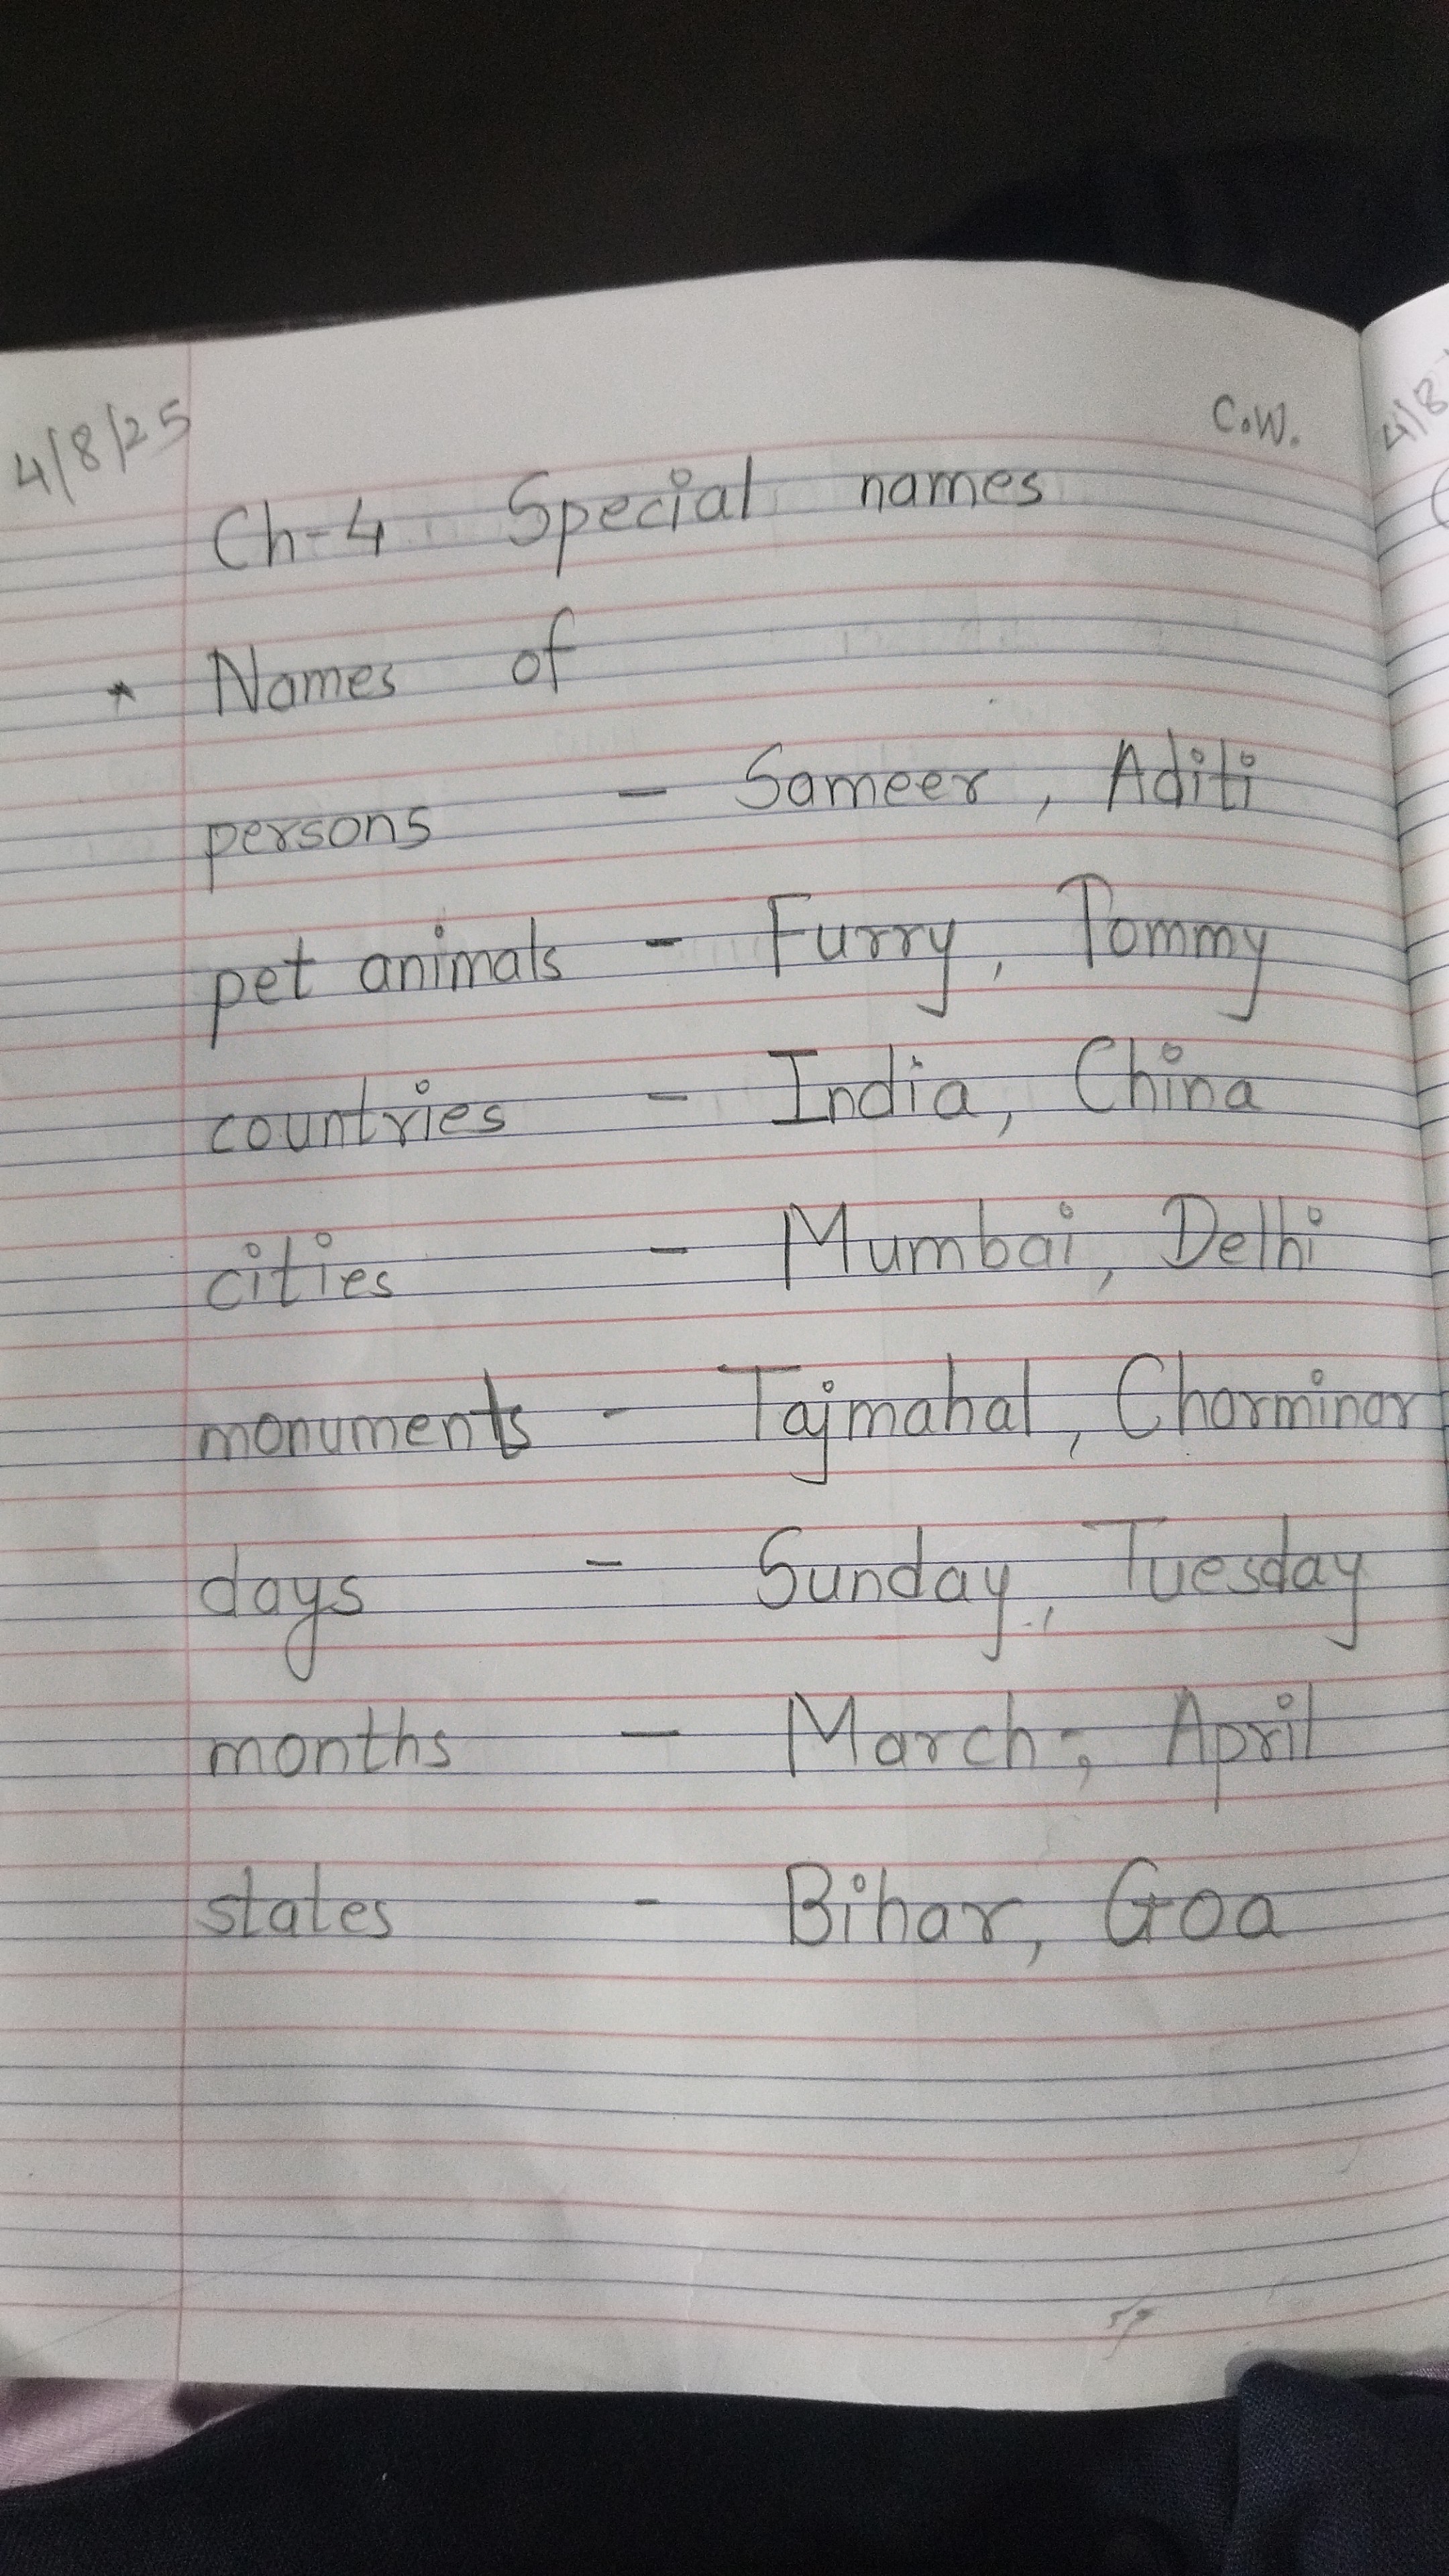 4/8/25
C.W.
Ch-4 Special names
* Names of
persons - Sameer, Aditi
pet animals - Furry, Tommy
countries - India, China
cities - Mumbai, Delhi
monuments - Tajmahal, Charminar
days - Sunday, Tuesday
months - March, April
states - Bihar, Goa
4/8